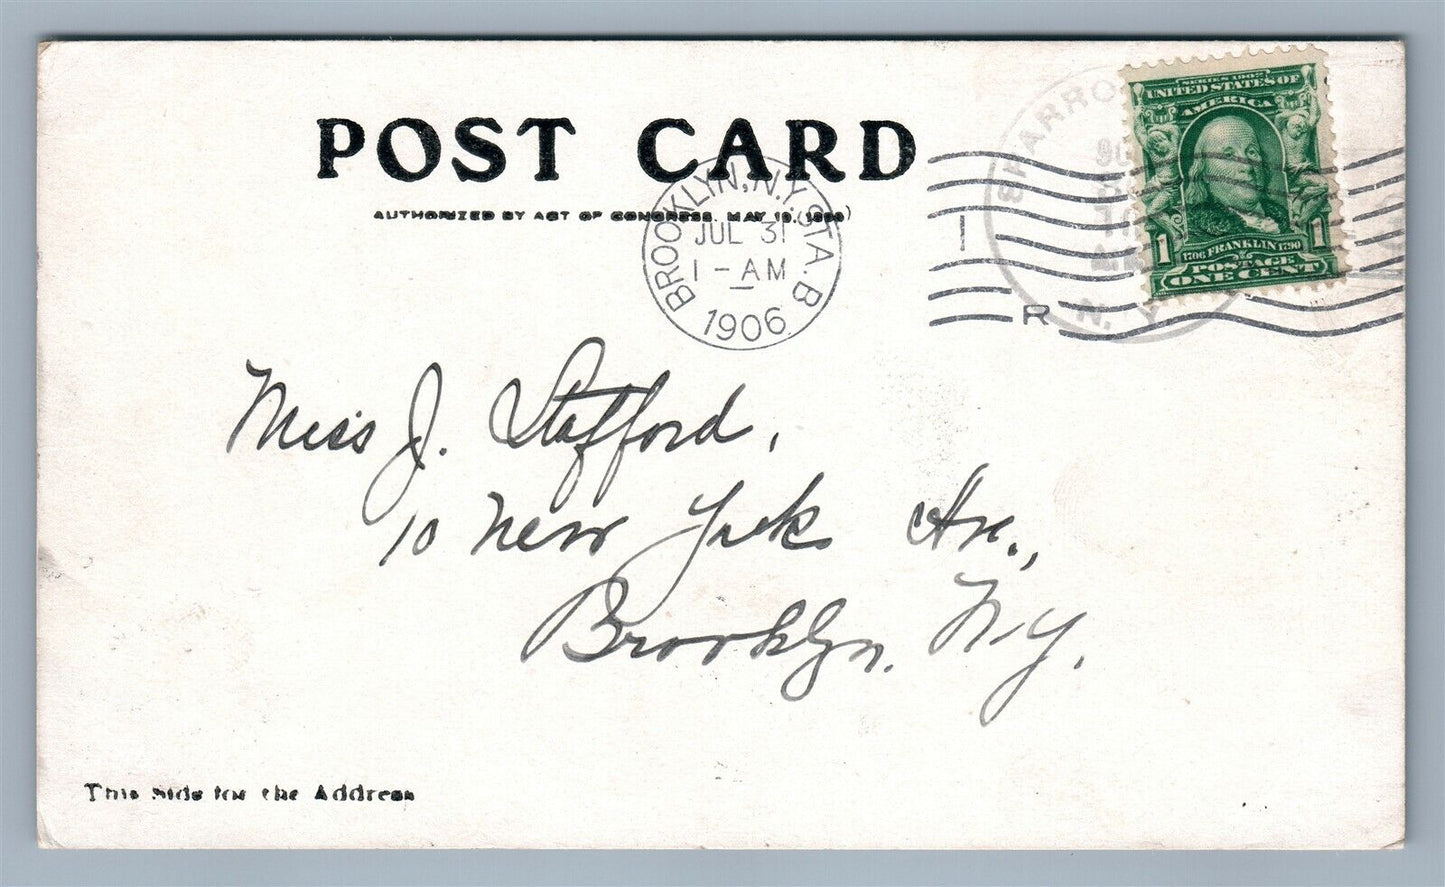 POST CARD
AUTHORIZED BY ACT OF CONGRESS, MAY 19, 1898)
BROOKLYN, N.Y. STA. B
JUL 31
1 - AM
1906
1
R
SPARRO
N. Y.
SERIES 1902
UNITED STATES OF
AMERICA
1 1
1706 FRANKLIN 1790
POSTAGE
ONE CENT
Miss J. Stafford,
10 New York Av.,
Brooklyn, N.Y.
This Side for the Address